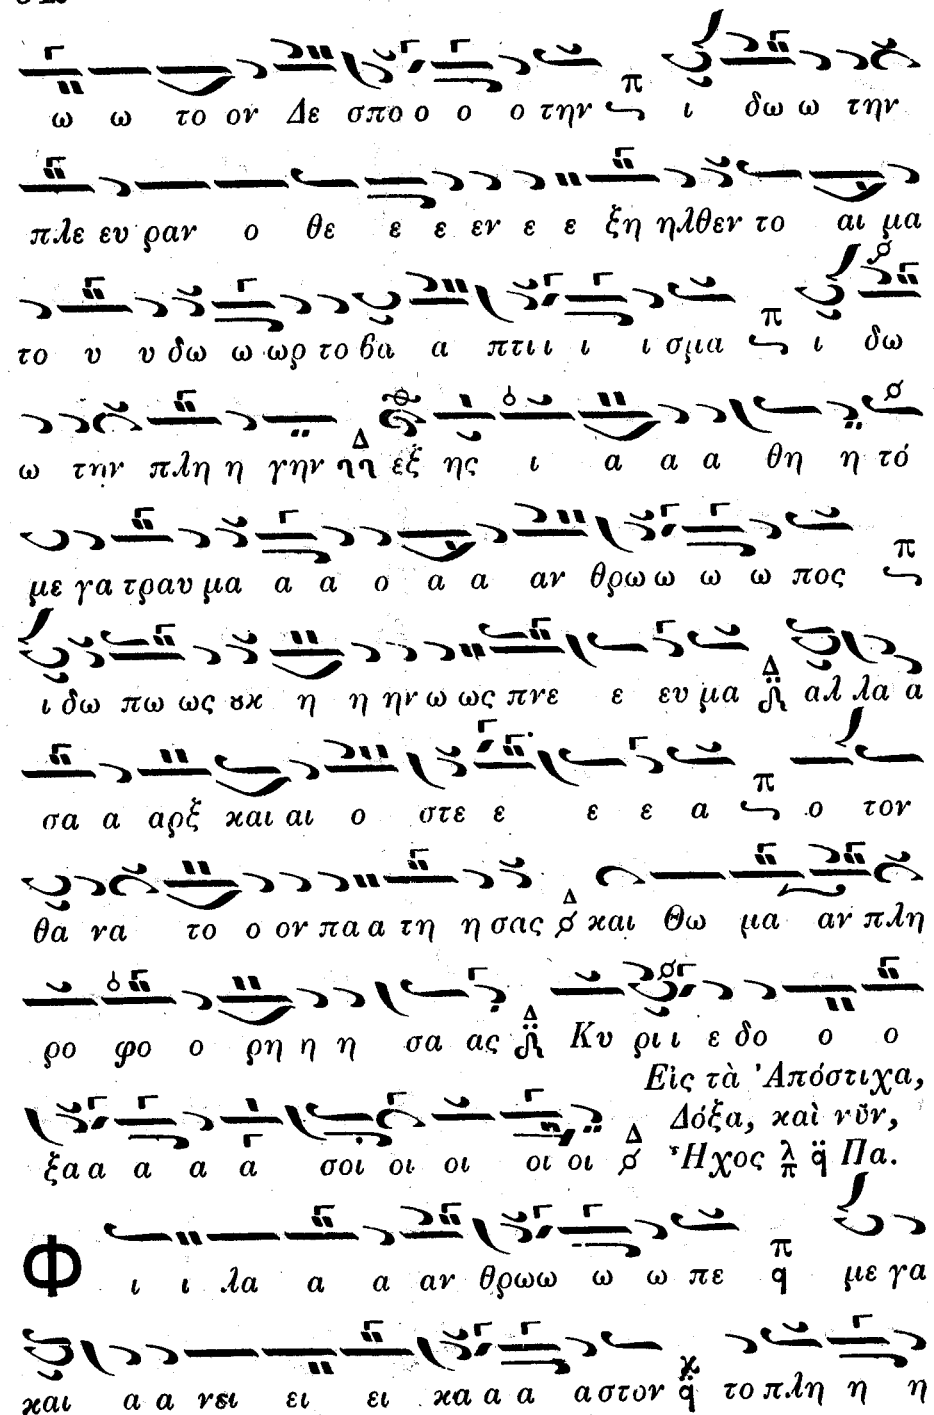 ω ω το ον Δε σπο ο ο ο την π ι δω ω την
πλε ευ ραν ο θε ε ε εν ε ε ξη ηλθεν το αι μα
το υ υ δω ω ωρ το βα α πτι ι ι ι σμα π ι δω
ω την πλη η γην Δ ἐξ ης ι α α α θη η τό
με γα τραυ μα α α ο α α αν θρω ω ω ω πος π
ι δω πω ως ȣκ η η ην ω ως πνε ε ευ μα Δ αλ λα α
σα α αρξ και αι ο στε ε ε ε α π ο τον
θα να το ο ον πα α τη η σας Δ και Θω μα αν πλη
ρο φο ο ρη η η σα ας Δ Κυ ρι ι ε δο ο ο
ξα α α α α σοι οι οι οι οι Δ
Εἰς τὰ Ἀπόστιχα,
Δόξα, καὶ νῦν,
Ἦχος λ π q̈ Πα.
Φ ι ι λα α α αν θρω ω ω ω πε π q με γα
και α α νει ει ει κα α α α στον q̈ το πλη η η